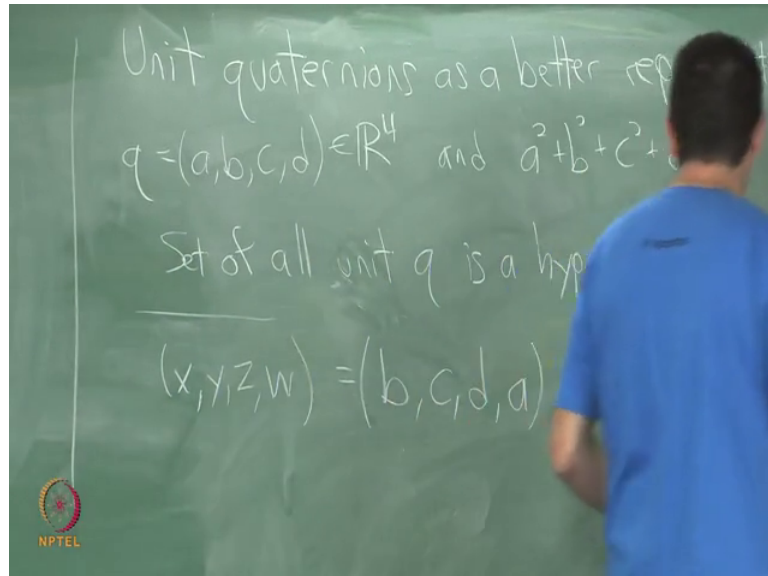 Unit quaternions as a better
q = (a, b, c, d) ∈ ℝ⁴ and a² + b² + c² +
Set of all unit q is a
(x, y, z, w) = (b, c, d, a)
NPTEL